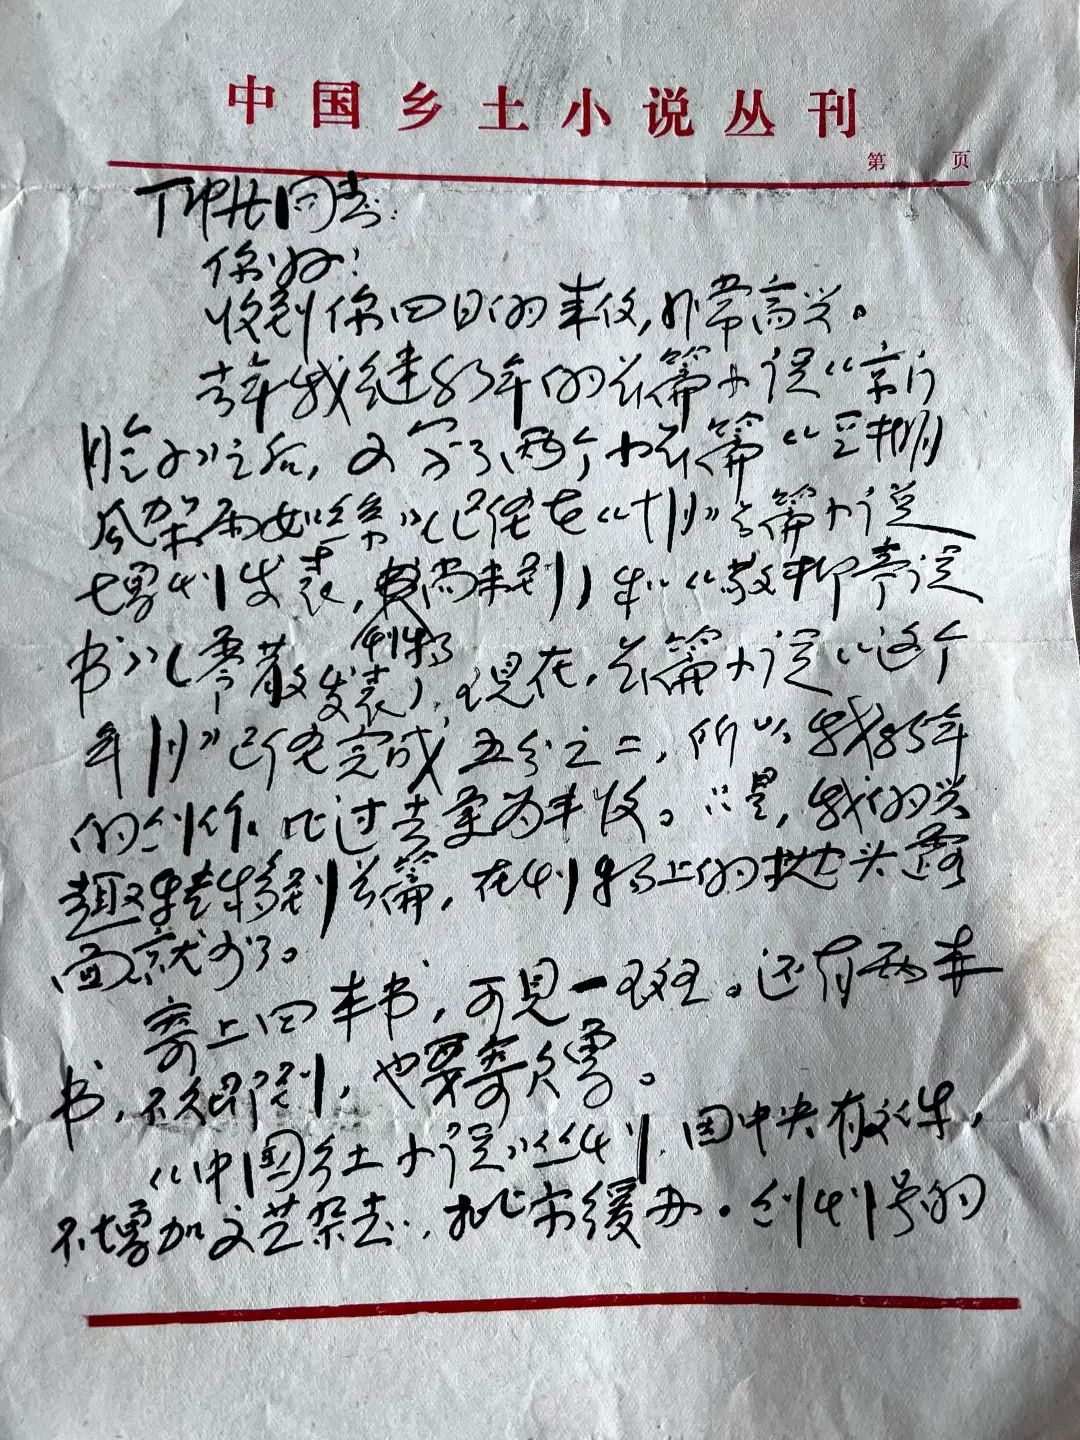 中国乡土小说丛刊
第 页
丁仰共同志：
你好！
收到你四日的来信，非常高兴。
去年我继83年的长篇小说《京门
脸子》之后，又写了两个小长篇《豆棚
瓜架雨如丝》（已经在《十月》长篇小说
增刊发表，尚未到）和《敬柳亭说
书》（零散刊物发表），现在，长篇小说《这个
年月》已经完成五分之二，所以我85年
的创作，比过去更为丰收。只是，我的兴
趣转移到长篇，在刊物上的抛头露
面就少了。
寄上四本书，可见一斑。还有两本
书，不久即到，也要寄欠。
《中国乡土小说》丛刊，因中央有文件，
不增加文艺杂志，批字缓办。创刊号的